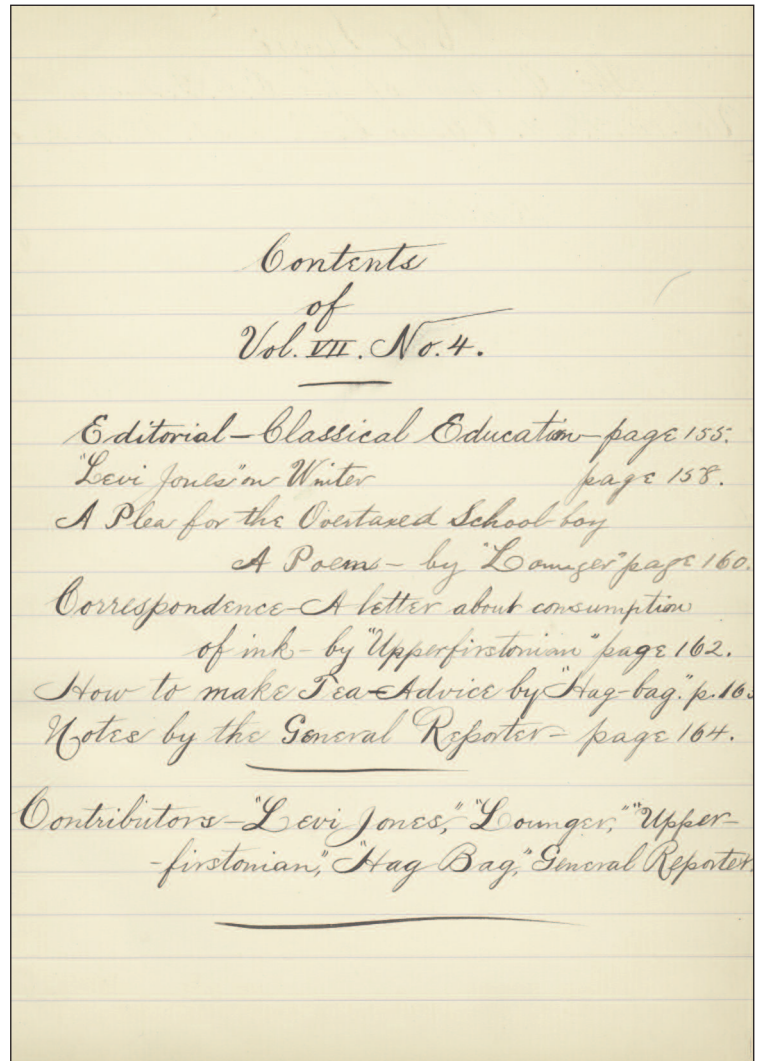 Contents
of
Vol. VII. No. 4.
Editorial – Classical Education – page 155.
"Levi Jones" on Winter page 158.
A Plea for the Overtaxed School-boy
A Poem – by "Lounger" page 160.
Correspondence – A letter about consumption
of ink – by "Upperfirstonian" page 162.
How to make Tea – Advice by "Hag-bag." p. 163
Notes by the General Reporter – page 164.
Contributors – "Levi Jones," "Lounger," "Upper-
-firstonian," "Hag Bag," General Reporter.